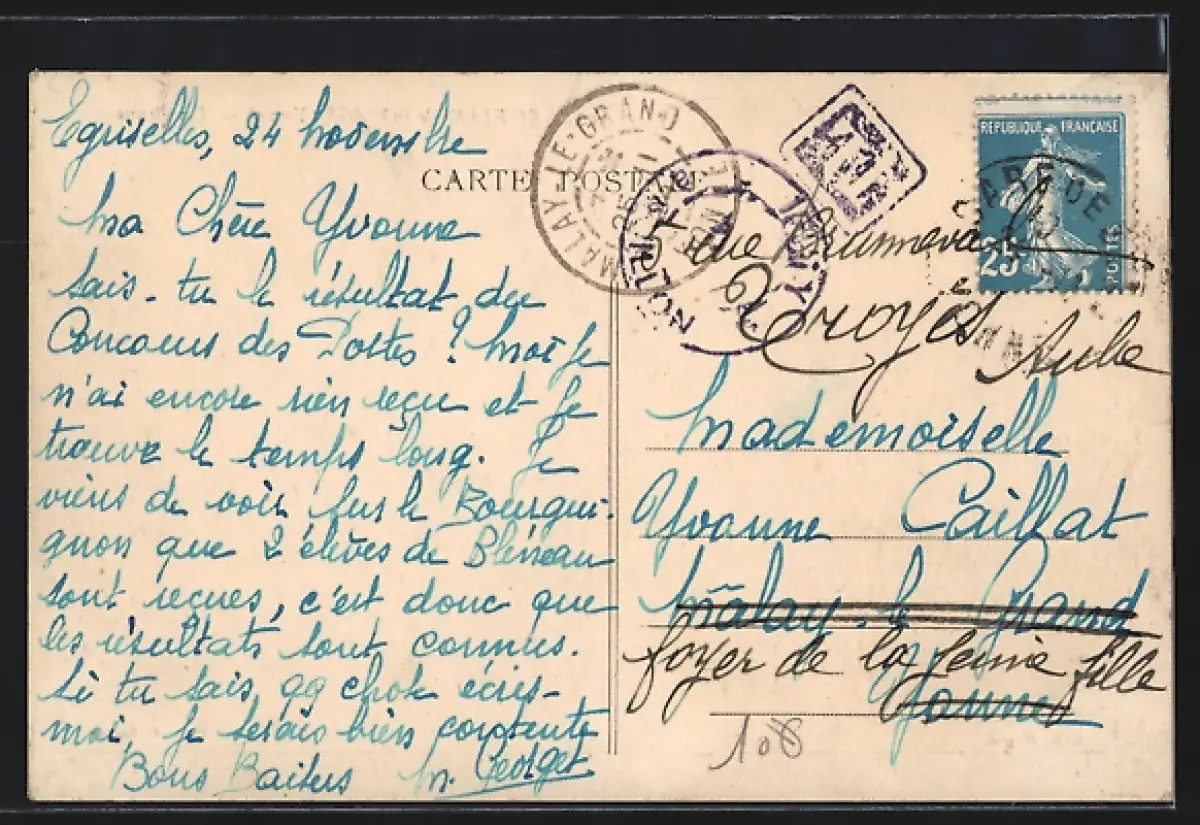 Egriselles, 24 novembre
Ma Chère Yvonne
Sais-tu le résultat du
Concours des Postes ? Moi je
n'ai encore rien reçu et je
trouve le temps long. Je
viens de voir sur le Bourgui-
gnon que 2 élèves de Bléneau
sont reçues, c'est donc que
les résultats sont connus.
Si tu sais qq chose écris-
moi, je serais bien contente
Bons Baisers M. Georget
CARTE POSTALE
MALAY LE GRAND
REPUBLIQUE FRANÇAISE
25
POSTES
rue
Troyes
Aube
Mademoiselle
Yvonne Caillat
Malay-le-Grand
foyer de la jeune fille
Yonne
108